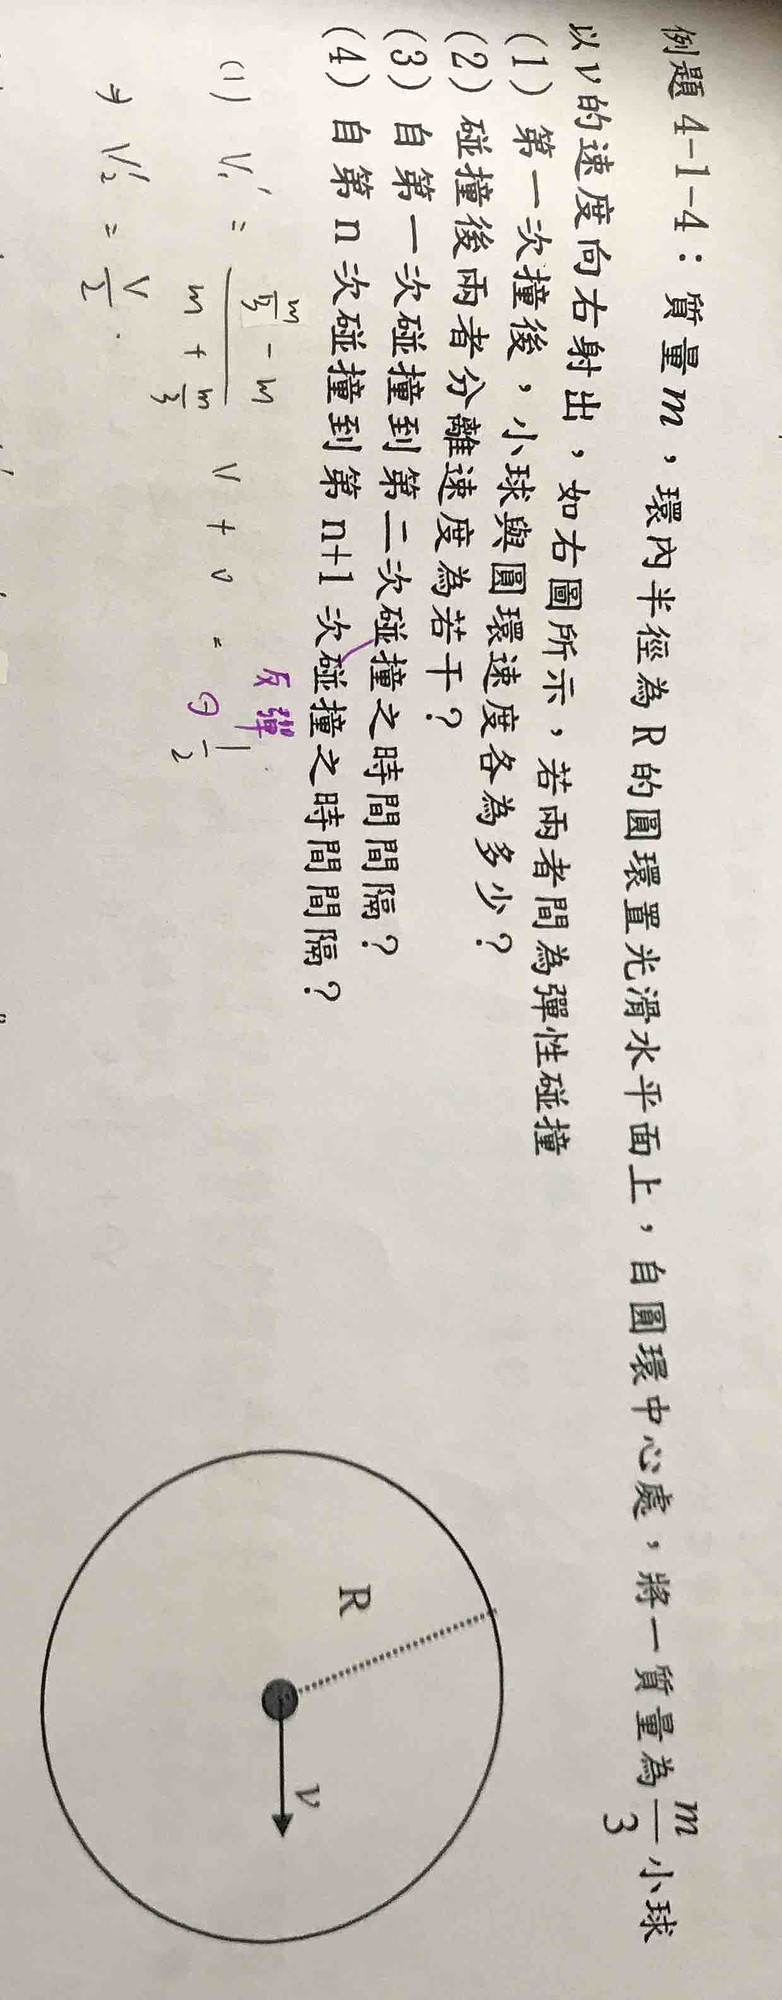 例題 4-1-4：質量m，環內半徑為 R 的圓環置光滑水平面上，自圓環中心處，將一質量為 m/3 小球
以ν的速度向右射出，如右圖所示，若兩者間為彈性碰撞
(1) 第一次撞後，小球與圓環速度各為多少？
(2) 碰撞後兩者分離速度為若干？
(3) 自第一次碰撞到第二次碰撞之時間間隔？
(4) 自第 n 次碰撞到第 n+1 次碰撞之時間間隔？
反彈
(1) V₁' = (m/3 - m)/(m + m/3) V + 0 = ⊖ 1/2
⇒ V₂' = V/2 .
R
ν